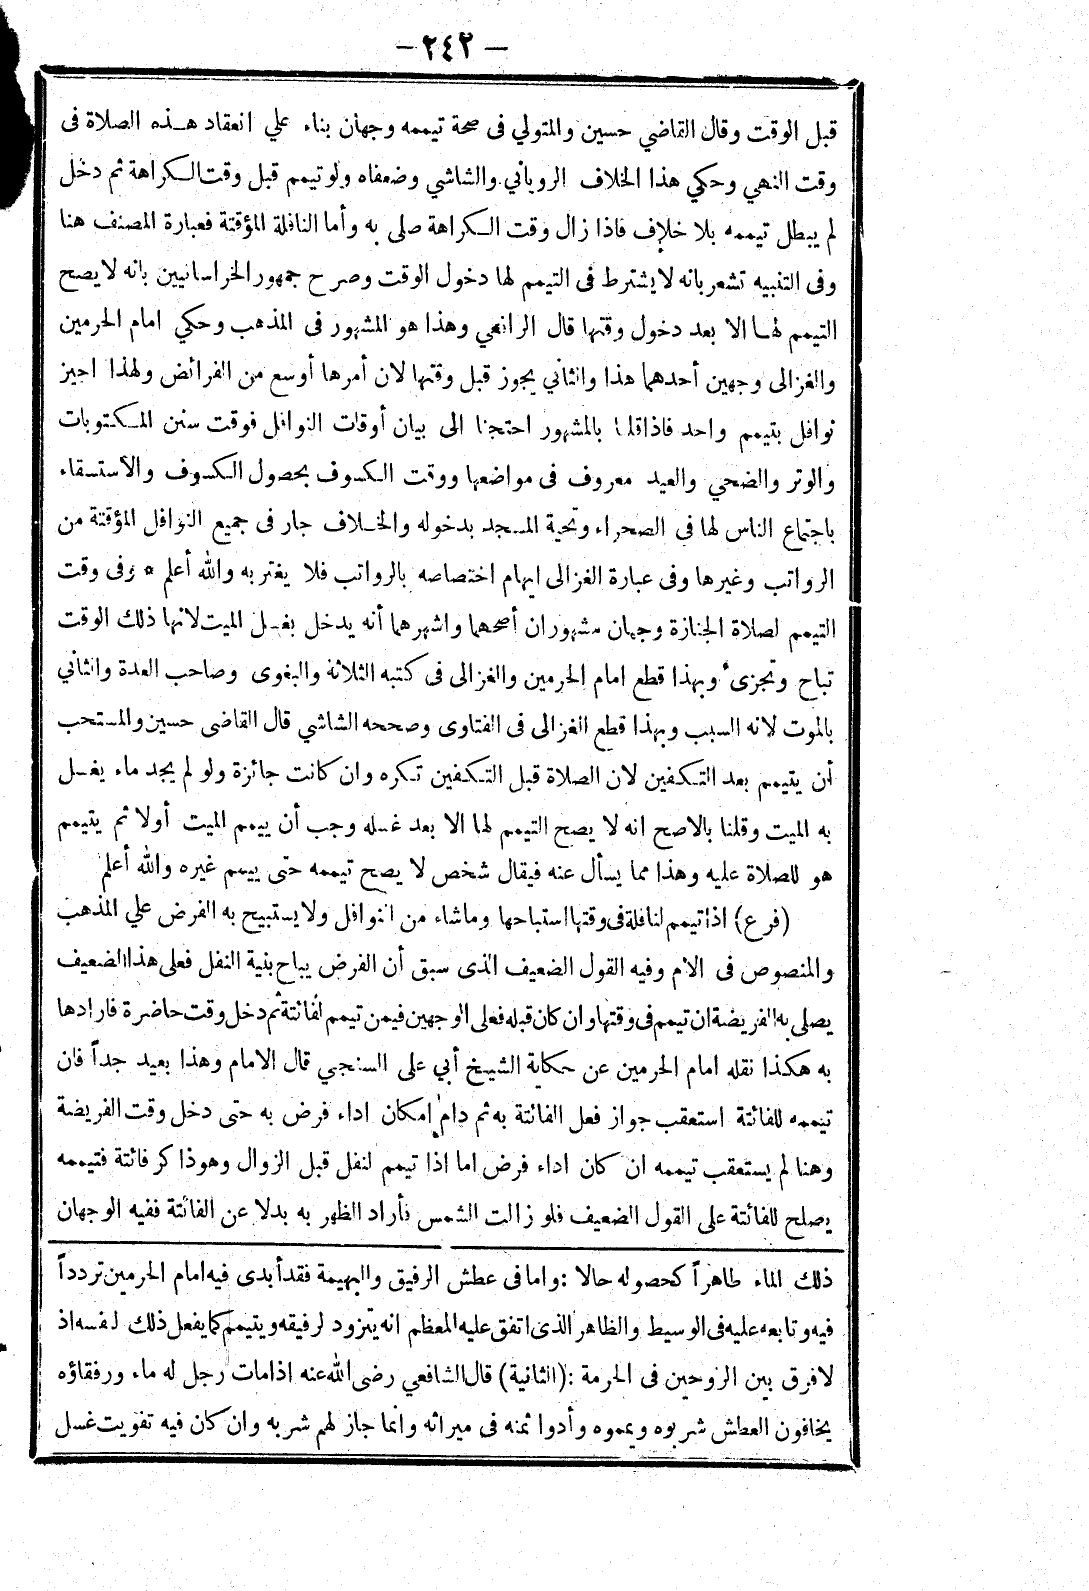 – ٢٤٢ –
قبل الوقت وقال القاضي حسين والمتولي فى صحة تيممه وجهان بناء علي انعقاد هذه الصلاة فى
وقت النهي وحكي هذا الخلاف الروياني والشاشي وضعفاه ولو تيمم قبل وقت الكراهة ثم دخل
لم يبطل تيممه بلا خلاف فاذا زال وقت الكراهة صلى به وأما النافلة المؤقتة فعبارة المصنف هنا
وفى التنبيه تشعر بانه لا يشترط فى التيمم لها دخول الوقت وصرح جمهور الخراسانيين بانه لا يصح
التيمم لها الا بعد دخول وقتها قال الرافعي وهذا هو المشهور فى المذهب وحكي امام الحرمين
والغزالى وجهين أحدهما هذا والثاني يجوز قبل وقتها لان أمرها أوسع من الفرائض ولهذا اجيز
نوافل بتيمم واحد فاذا قلنا بالمشهور احتجنا الى بيان أوقات النوافل فوقت سنن المكتوبات
والوتر والضحي والعيد معروف فى مواضعها ووقت الكسوف بحصول الكسوف والاستسقاء
باجتماع الناس لها فى الصحراء وتحية المسجد بدخوله والخلاف جار فى جميع النوافل المؤقتة من
الرواتب وغيرها وفى عبارة الغزالى ايهام اختصاصه بالرواتب فلا يغتر به والله أعلم * وفى وقت
التيمم لصلاة الجنازة وجهان مشهوران أصحهما واشهرهما أنه يدخل بغسل الميت لانها ذلك الوقت
تباح وتجزىء وبهذا قطع امام الحرمين والغزالى فى كتبه الثلاثة والبغوى وصاحب العدة والثاني
بالموت لانه السبب وبهذا قطع الغزالى فى الفتاوى وصححه الشاشي قال القاضى حسين والمستحب
أن يتيمم بعد التكفين لان الصلاة قبل التكفين تكره وان كانت جائزة ولو لم يجد ماء يغسل
به الميت وقلنا بالاصح انه لا يصح التيمم لها الا بعد غسله وجب أن ييمم الميت أولا ثم يتيمم
هو للصلاة عليه وهذا مما يسأل عنه فيقال شخص لا يصح تيممه حتى ييمم غيره والله أعلم
(فرع) اذا تيمم لنافلة فى وقتها استباحها وما شاء من النوافل ولا يستبيح به الفرض علي المذهب
والمنصوص فى الام وفيه القول الضعيف الذى سبق أن الفرض يباح بنية النفل فعلى هذا الضعيف
يصلى به الفريضة ان تيمم فى وقتها وان كان قبله فعلى الوجهين فيمن تيمم لفائتة ثم دخل وقت حاضرة فارادها
به هكذا نقله امام الحرمين عن حكاية الشيخ أبي على السنجي قال الامام وهذا بعيد جداً فان
تيممه للفائتة استعقب جواز فعل الفائتة به ثم دام امكان اداء فرض به حتى دخل وقت الفريضة
وهنا لم يستعقب تيممه ان كان اداء فرض اما اذا تيمم لنفل قبل الزوال وهو ذا كر فائتة فتيممه
يصلح للفائتة على القول الضعيف فلو زالت الشمس فأراد الظهر به بدلا عن الفائتة ففيه الوجهان
ذلك الماء طاهراً كحصوله حالا : واما فى عطش الرفيق والبهيمة فقد أبدى فيه امام الحرمين تردداً
فيه وتابعه عليه فى الوسيط والظاهر الذى اتفق عليه المعظم انه يتزود لرفيقه ويتيمم كما يفعل ذلك لنفسه اذ
لا فرق بين الروحين فى الحرمة : (الثانية) قال الشافعي رضى الله عنه اذا مات رجل له ماء ورفقاؤه
يخافون العطش شربوه ويمموه وأدوا ثمنه فى ميراثه وانما جاز لهم شربه وان كان فيه تفويت غسل